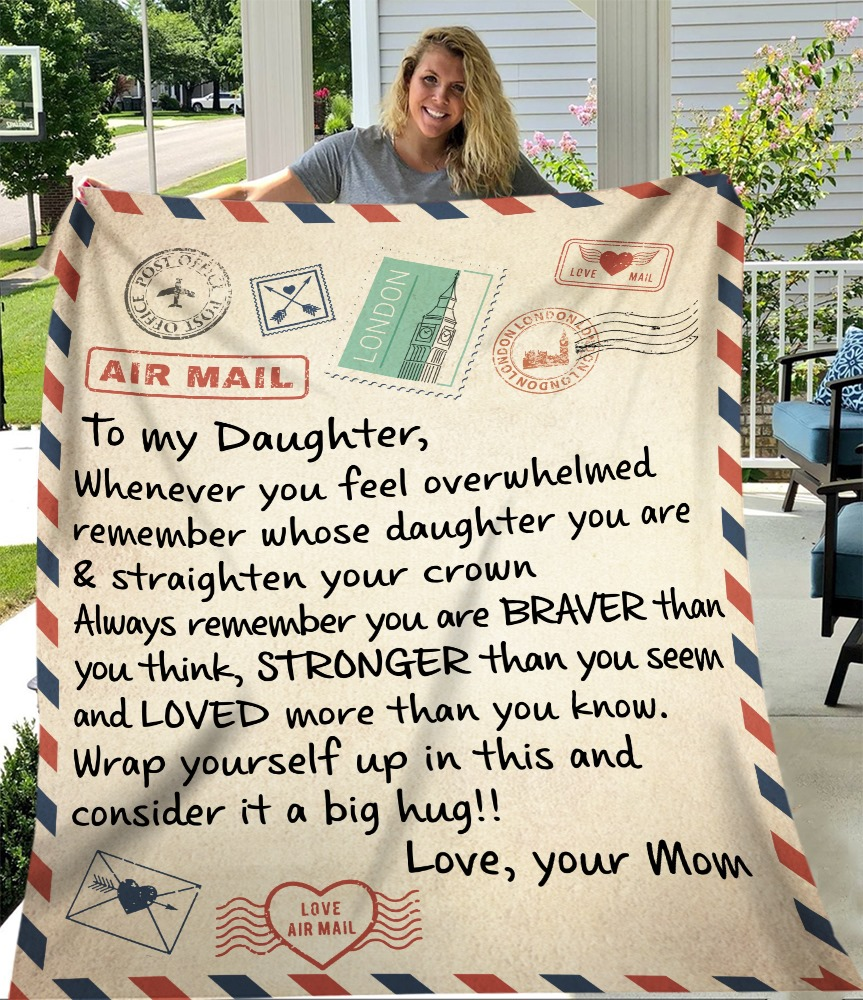 SPALDING
POST OFFICE POST OFFICE
LONDON
LOVE MAIL
LONDON LONDON LONDON LONDON
AIR MAIL
To my Daughter,
Whenever you feel overwhelmed
remember whose daughter you are
& straighten your crown
Always remember you are BRAVER than
you think, STRONGER than you seem
and LOVED more than you know.
Wrap yourself up in this and
consider it a big hug!!
Love, your Mom
LOVE
AIR MAIL